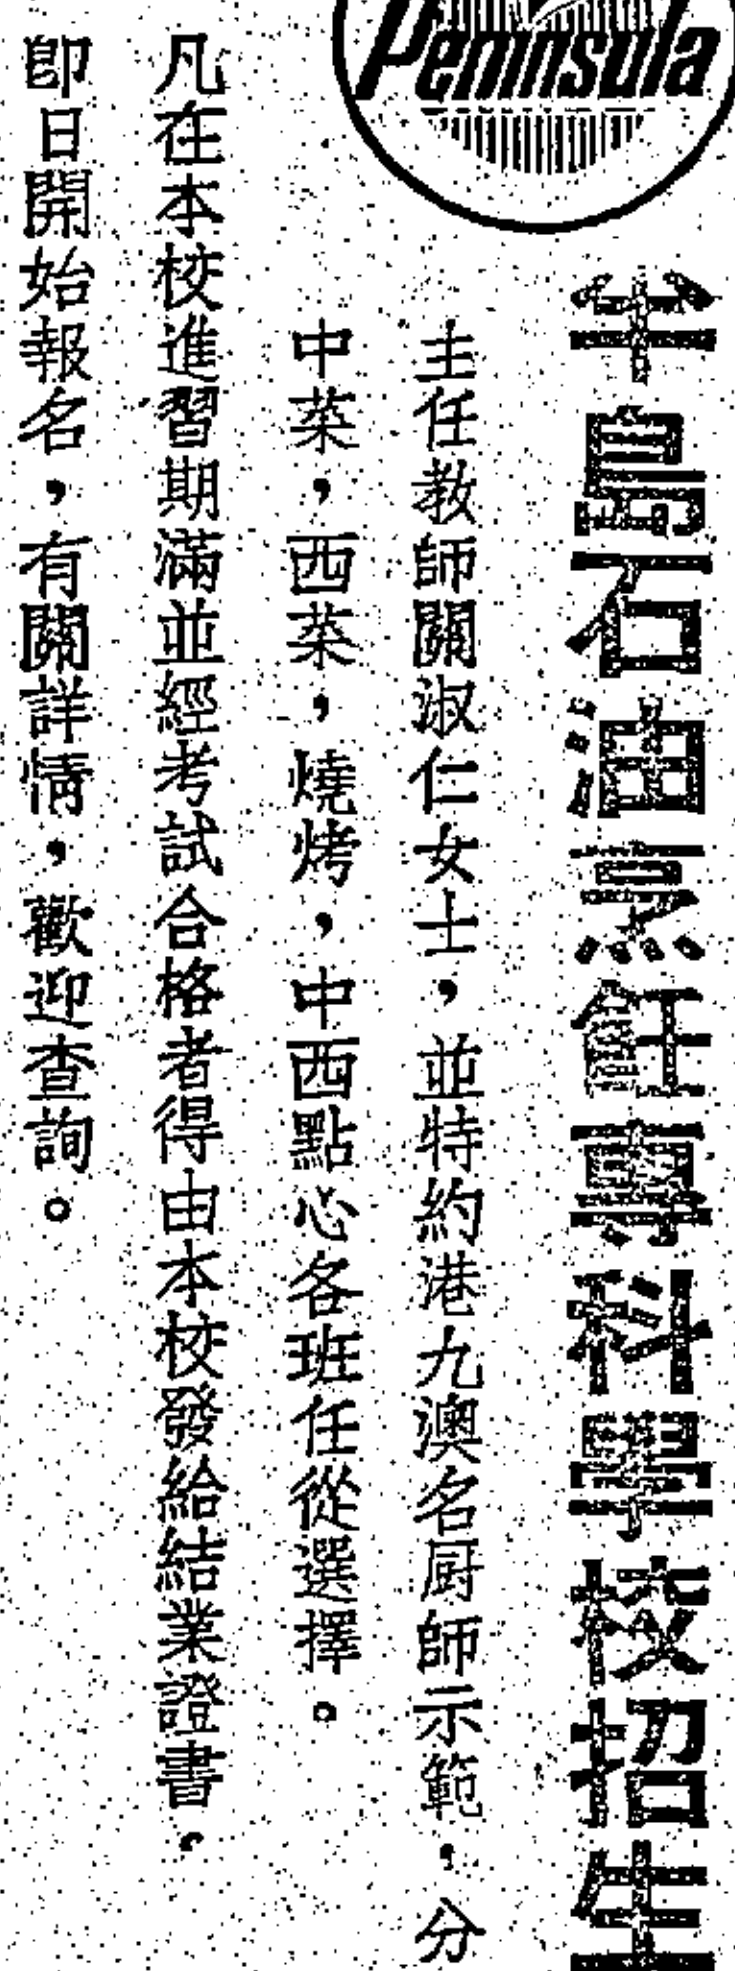 Peninsula
半島石油烹飪專科學校招生
主任教師關淑仁女士，並特約港九澳名厨師示範，分
中菜，西菜，燒烤，中西點心各班任從選擇。
凡在本校進習期滿並經考試合格者得由本校發給結業證書。
即日開始報名，有關詳情，歡迎查詢。